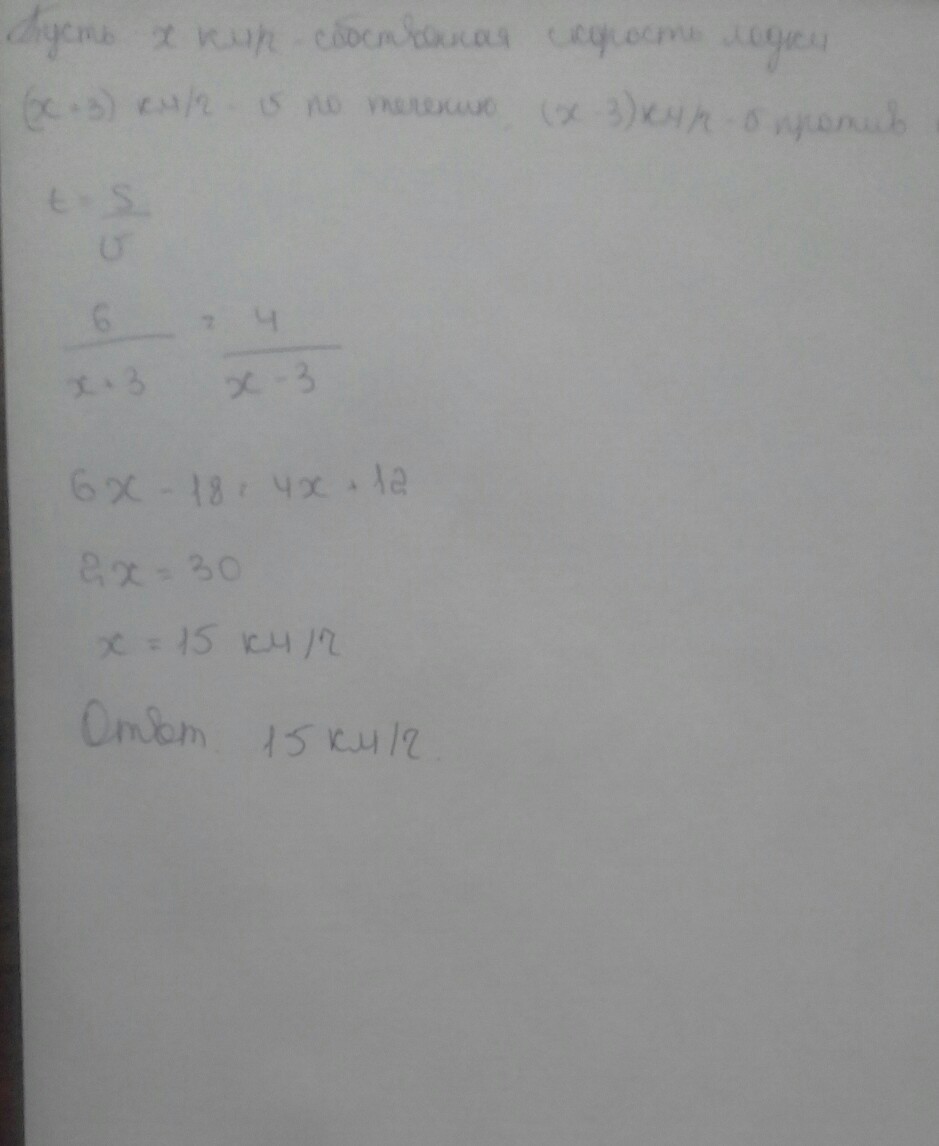 Пусть x км/ч - собственная скорость лодки
(x+3) км/ч - υ по течению, (x-3) км/ч - υ против
t = S/υ
6/(x+3) = 4/(x-3)
6x - 18 = 4x + 12
2x = 30
x = 15 км/ч
Ответ 15 км/ч.